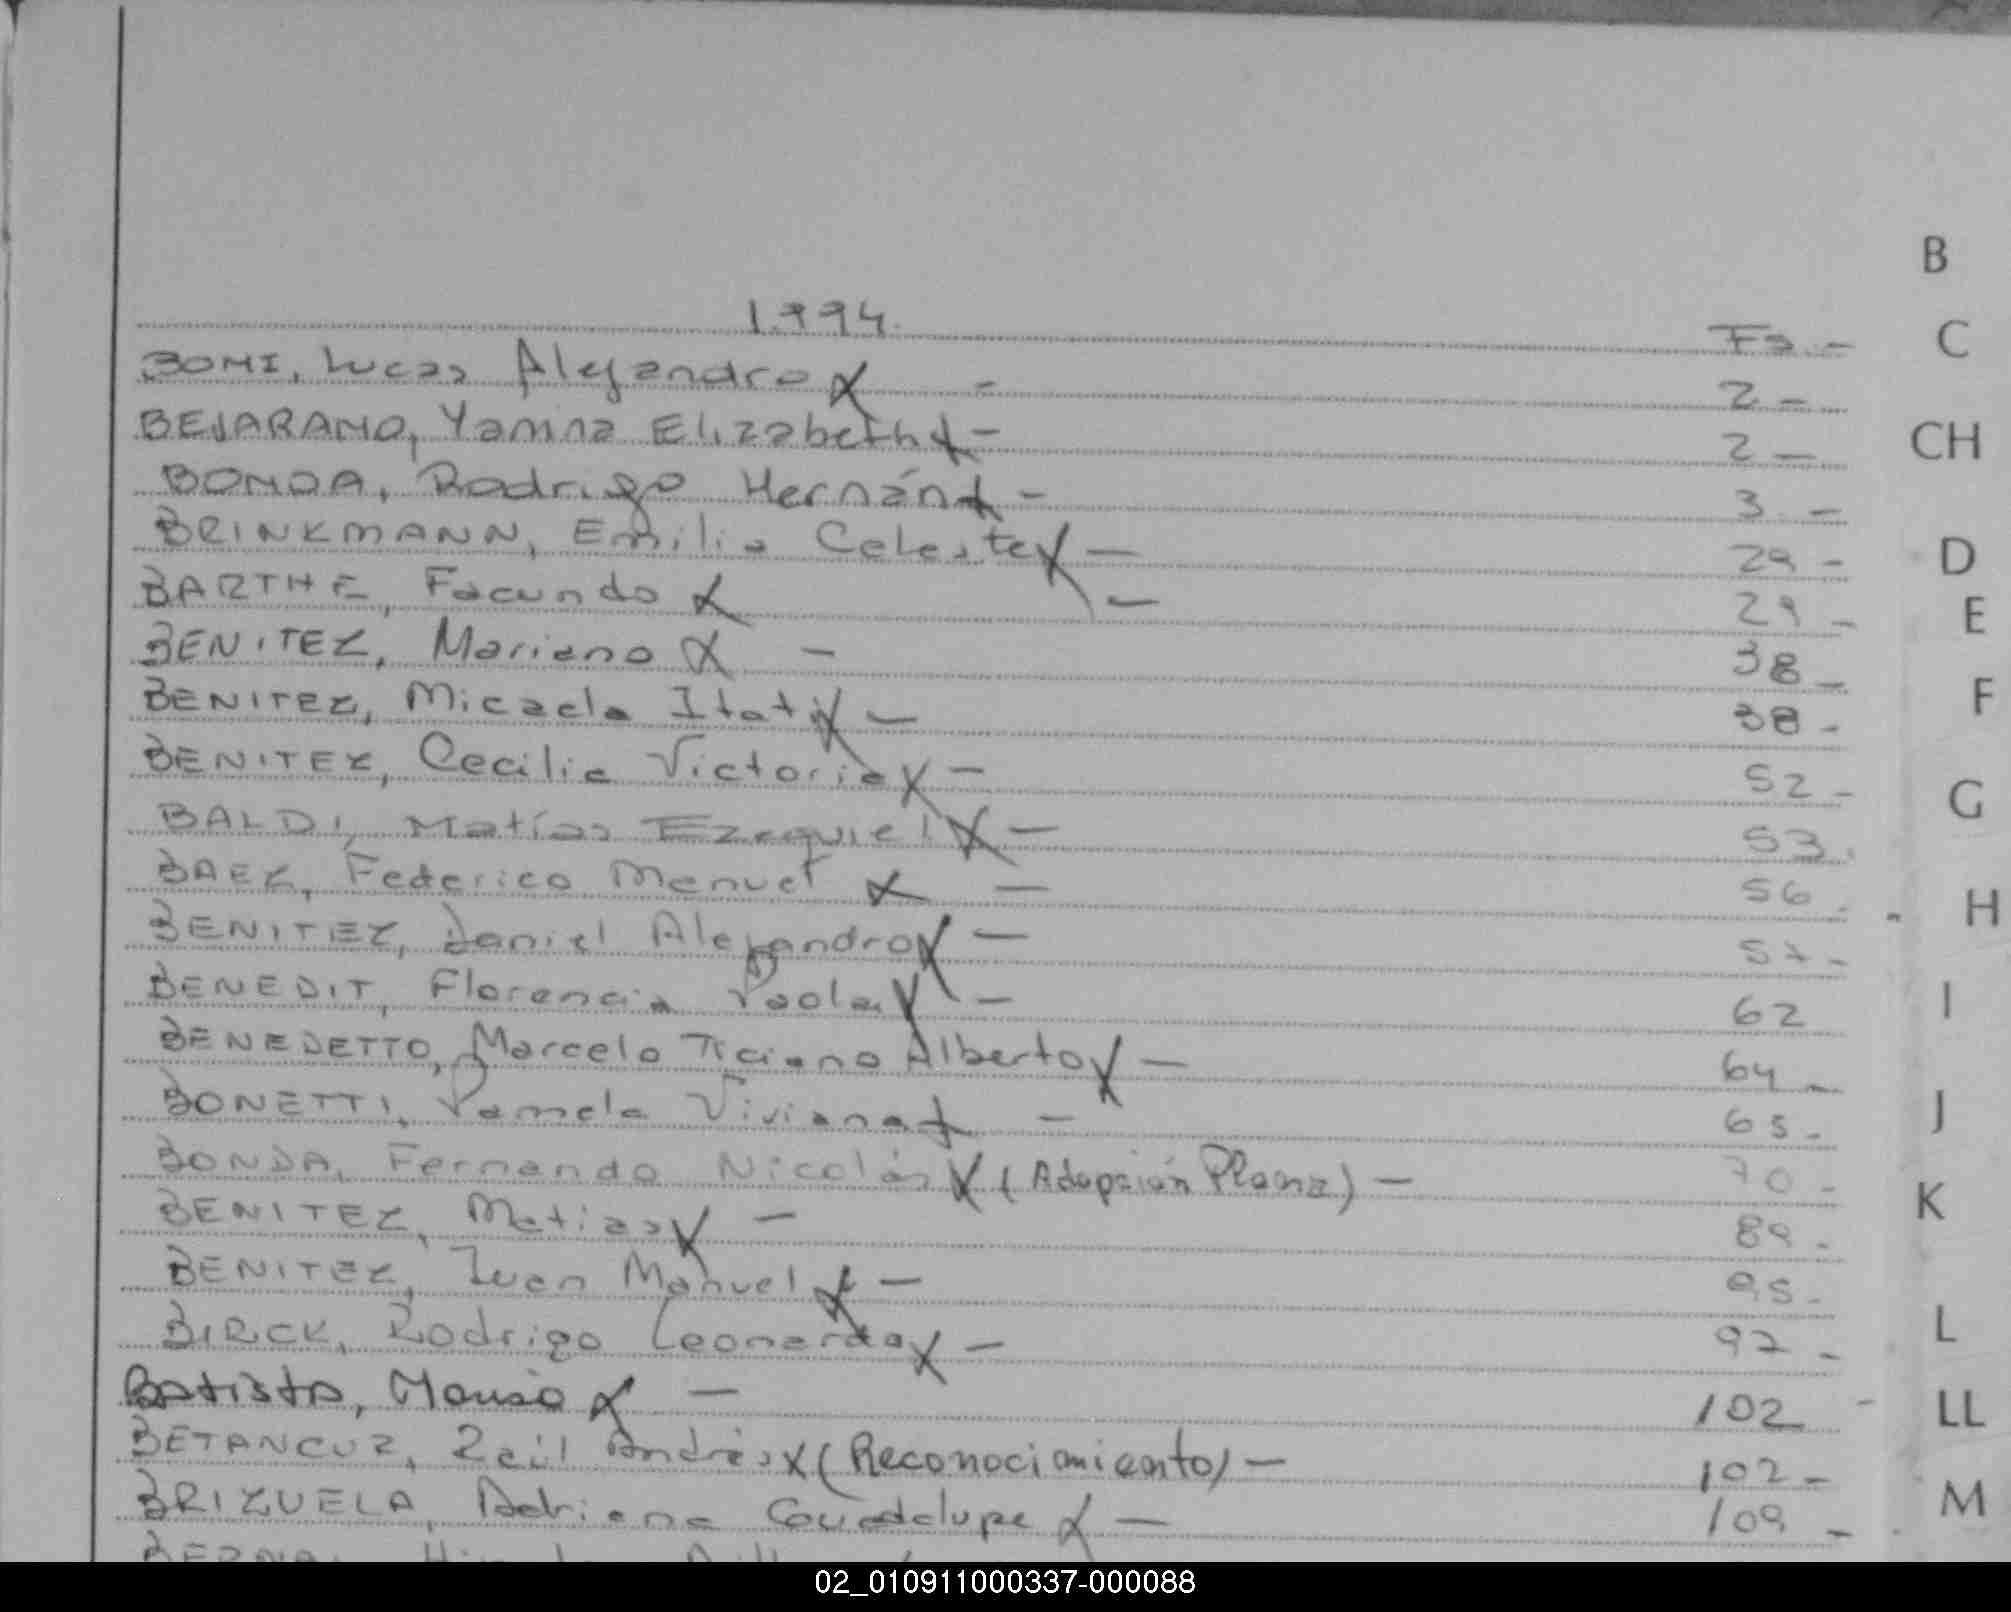 1994.
Fs -
BONI, Lucas Alejandro X - 2 -
BEJARANO, Yanina Elizabeth X - 2 -
BONDA, Rodrigo Hernán X - 3 -
BRINKMANN, Emilia Celeste X - 29 -
BARTHE, Facundo X - 29 -
BENITEZ, Mariano X - 38 -
BENITEZ, Micaela Itatí X - 38 -
BENITEZ, Cecilia Victoria X - 52 -
BALDI, Matías Ezequiel X - 53.
BAEZ, Federico Manuel X - 56 -
BENITEZ, Daniel Alejandro X - 57 -
BENEDIT, Florencia Paola X - 62
BENEDETTO, Marcelo Ticiano Alberto X - 64 -
BONETTI, Pamela Viviana X - 65 -
BONDA, Fernando Nicolás X (Adopción Plena) - 70 -
BENITEZ, Matias X - 89 -
BENITEZ, Juan Manuel X - 95 -
BIRCK, Rodrigo Leonardo X - 97 -
Batista, X - 102 -
BETANCUR, Raúl Andrés X (Reconocimiento) - 102 -
BRIZUELA, Adriana Guadalupe X - 109 -
B
C
CH
D
E
F
G
H
I
J
K
L
LL
M
02_010911000337-000088